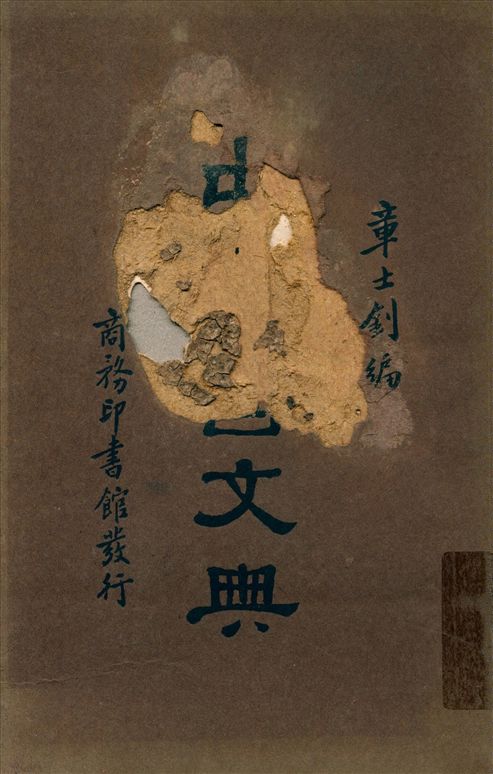 章士釗編
中 文典
商務印書館發行